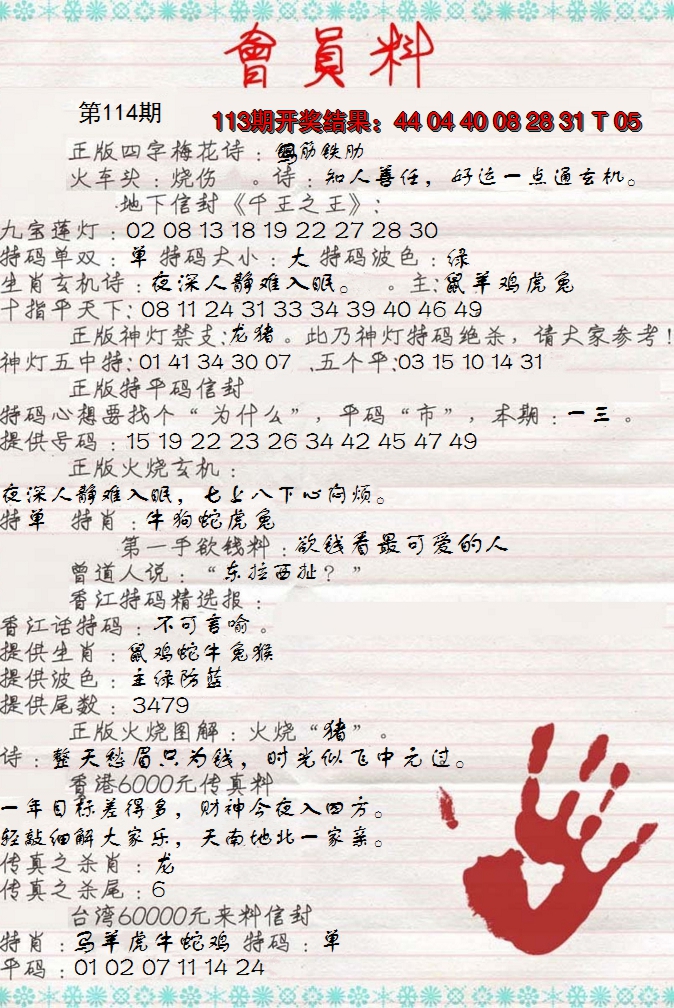 會員料
第114期
113期开奖结果：44 04 40 08 28 31 T 05
正版四字梅花诗：铜筋铁肋
火车头：烧伤 。诗：知人善任，好运一点通玄机。
地下信封《千王之王》：
九宝莲灯：02 08 13 18 19 22 27 28 30
特码单双：单 特码大小：大 特码波色：绿
生肖玄机诗：夜深人静难入眠。 。主：鼠羊鸡虎兔
十指平天下：08 11 24 31 33 34 39 40 46 49
正版神灯禁支：龙猪。此乃神灯特码绝杀，请大家参考！
神灯五中特：01 41 34 30 07 .五个平：03 15 10 14 31
正版特平码信封
特码心想要找个“为什么”，平码“市”，本期：一三。
提供号码：15 19 22 23 26 34 42 45 47 49
正版火烧玄机：
夜深人静难入眠，七上八下心闷烦。
特单 特肖：牛狗蛇虎兔
第一手欲钱料：欲钱看最可爱的人
曾道人说：“东拉西扯？”
香江特码精选报：
香江话特码：不可言喻。
提供生肖：鼠鸡蛇牛兔猴
提供波色：主绿防蓝
提供尾数：3479
正版火烧图解：火烧“猪”。
诗：整天愁眉只为钱，时光似飞中元过。
香港6000元传真料
一年目标差得多，财神今夜入四方。
轻敲细解大家乐，天南地北一家亲。
传真之杀肖：龙
传真之杀尾：6
台湾60000元来料信封
特肖：马羊虎牛蛇鸡 特码：单
平码：01 02 07 11 14 24